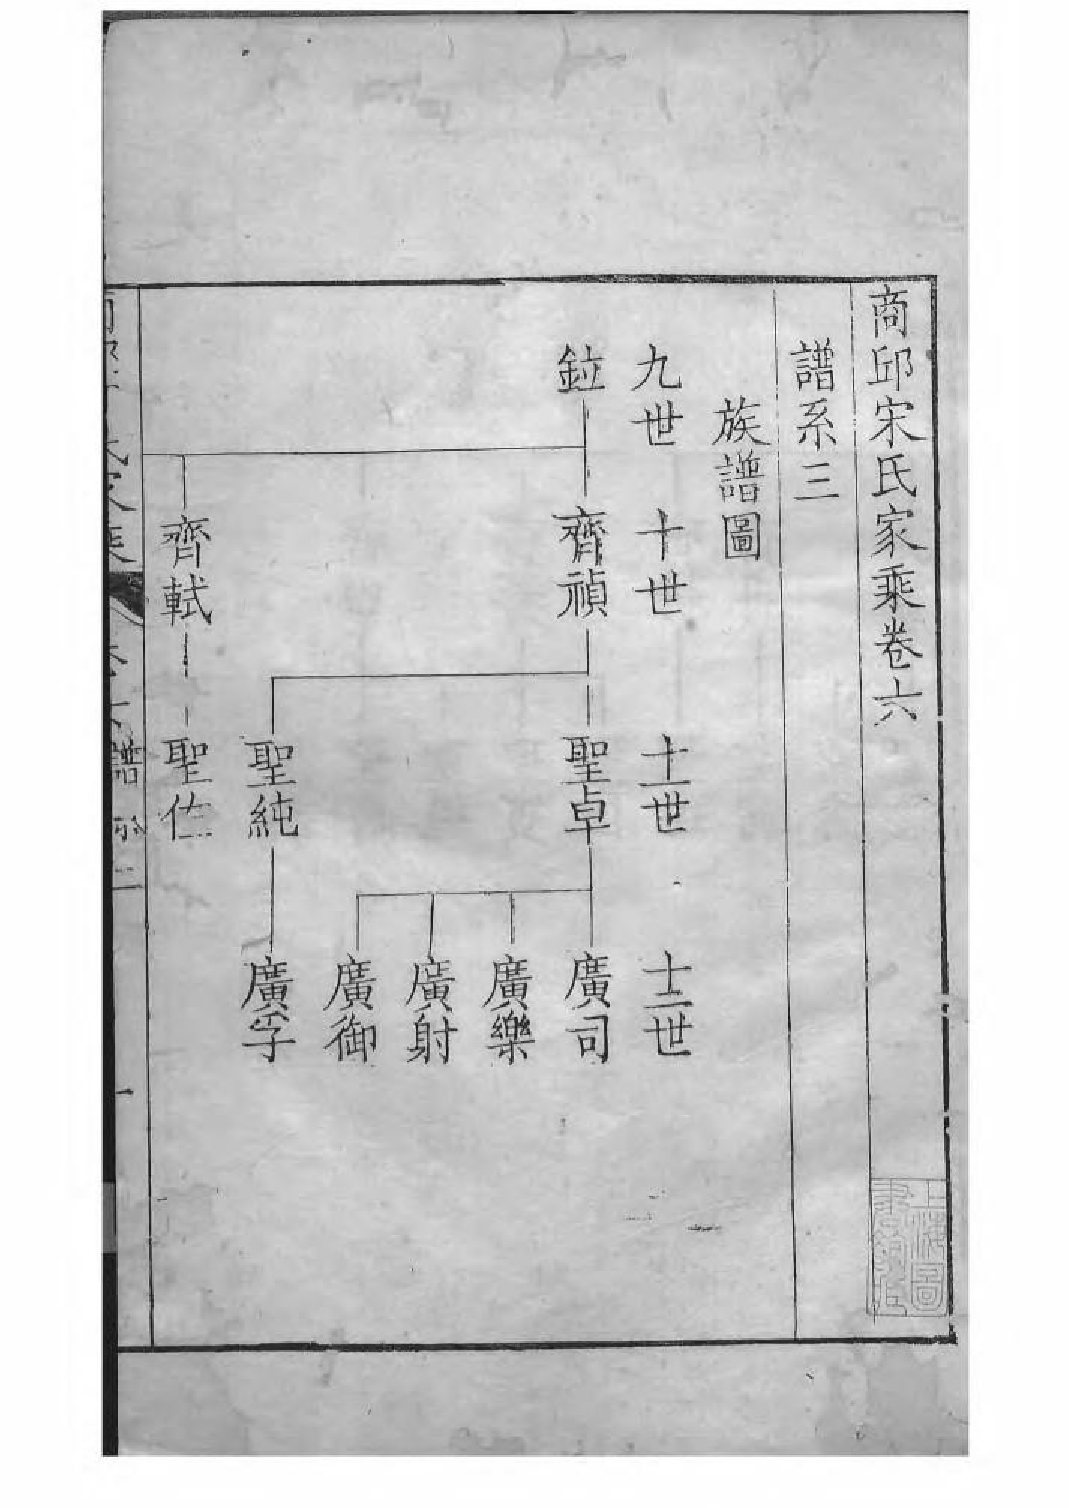 商邱宋氏家乘卷六
譜系三
族譜圖
九世 十世 十一世 十二世
鉝 齊禎 聖卓 廣司
廣樂
廣射
廣御
聖純 廣孚
齊軾 聖佐
上海圖
書館藏